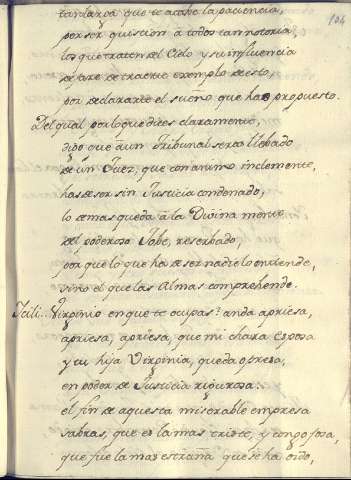 104
tardarda que te acabe la paciencia,
por ser question à todos tan notoria,
los que traten del Cielo y su influencia
dejare de traerte exemplo de esto,
por declararte el sueño que has propuesto.
Del qual por lo que dices claramente,
digo que à un Tribunal seras llebado
de un Juez, que con animo inclemente,
has de ser sin Justicia condenado,
lo demas queda à la Divina mente
del poderoso Jobe, reserbado,
por que lo que ha de ser nadie lo entiende,
sino el que las Almas comprehende.
Icili.. Virginio en que te ocupas? anda apriesa,
apriesa, apriesa, que mi chara Esposa
y tu hija Virginia, queda opresa,
en poder de Justicia rigurosa.
el fin de aquesta miserable empresa
sabras, que es la mas triste, y congojosa,
que fue la mas estraña que se ha oido,